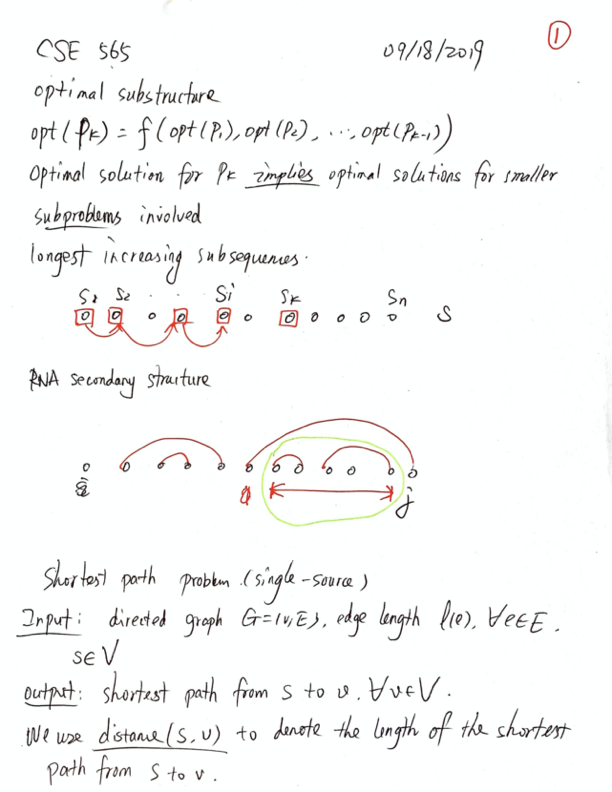 CSE 565 09/18/2019 1
optimal substructure
opt(Pk) = f(opt(P1), opt(P2), ..., opt(Pk-1))
Optimal solution for Pk implies optimal solutions for smaller
subproblems involved
longest increasing subsequences.
S1 S2 . . Si Sk Sn S
RNA secondary structure
i j
Shortest path problem. (single-source)
Input: directed graph G=(V,E), edge length l(e), ∀e∈E.
s∈V
output: shortest path from s to v, ∀v∈V.
We use distance(s,v) to denote the length of the shortest
path from s to v.